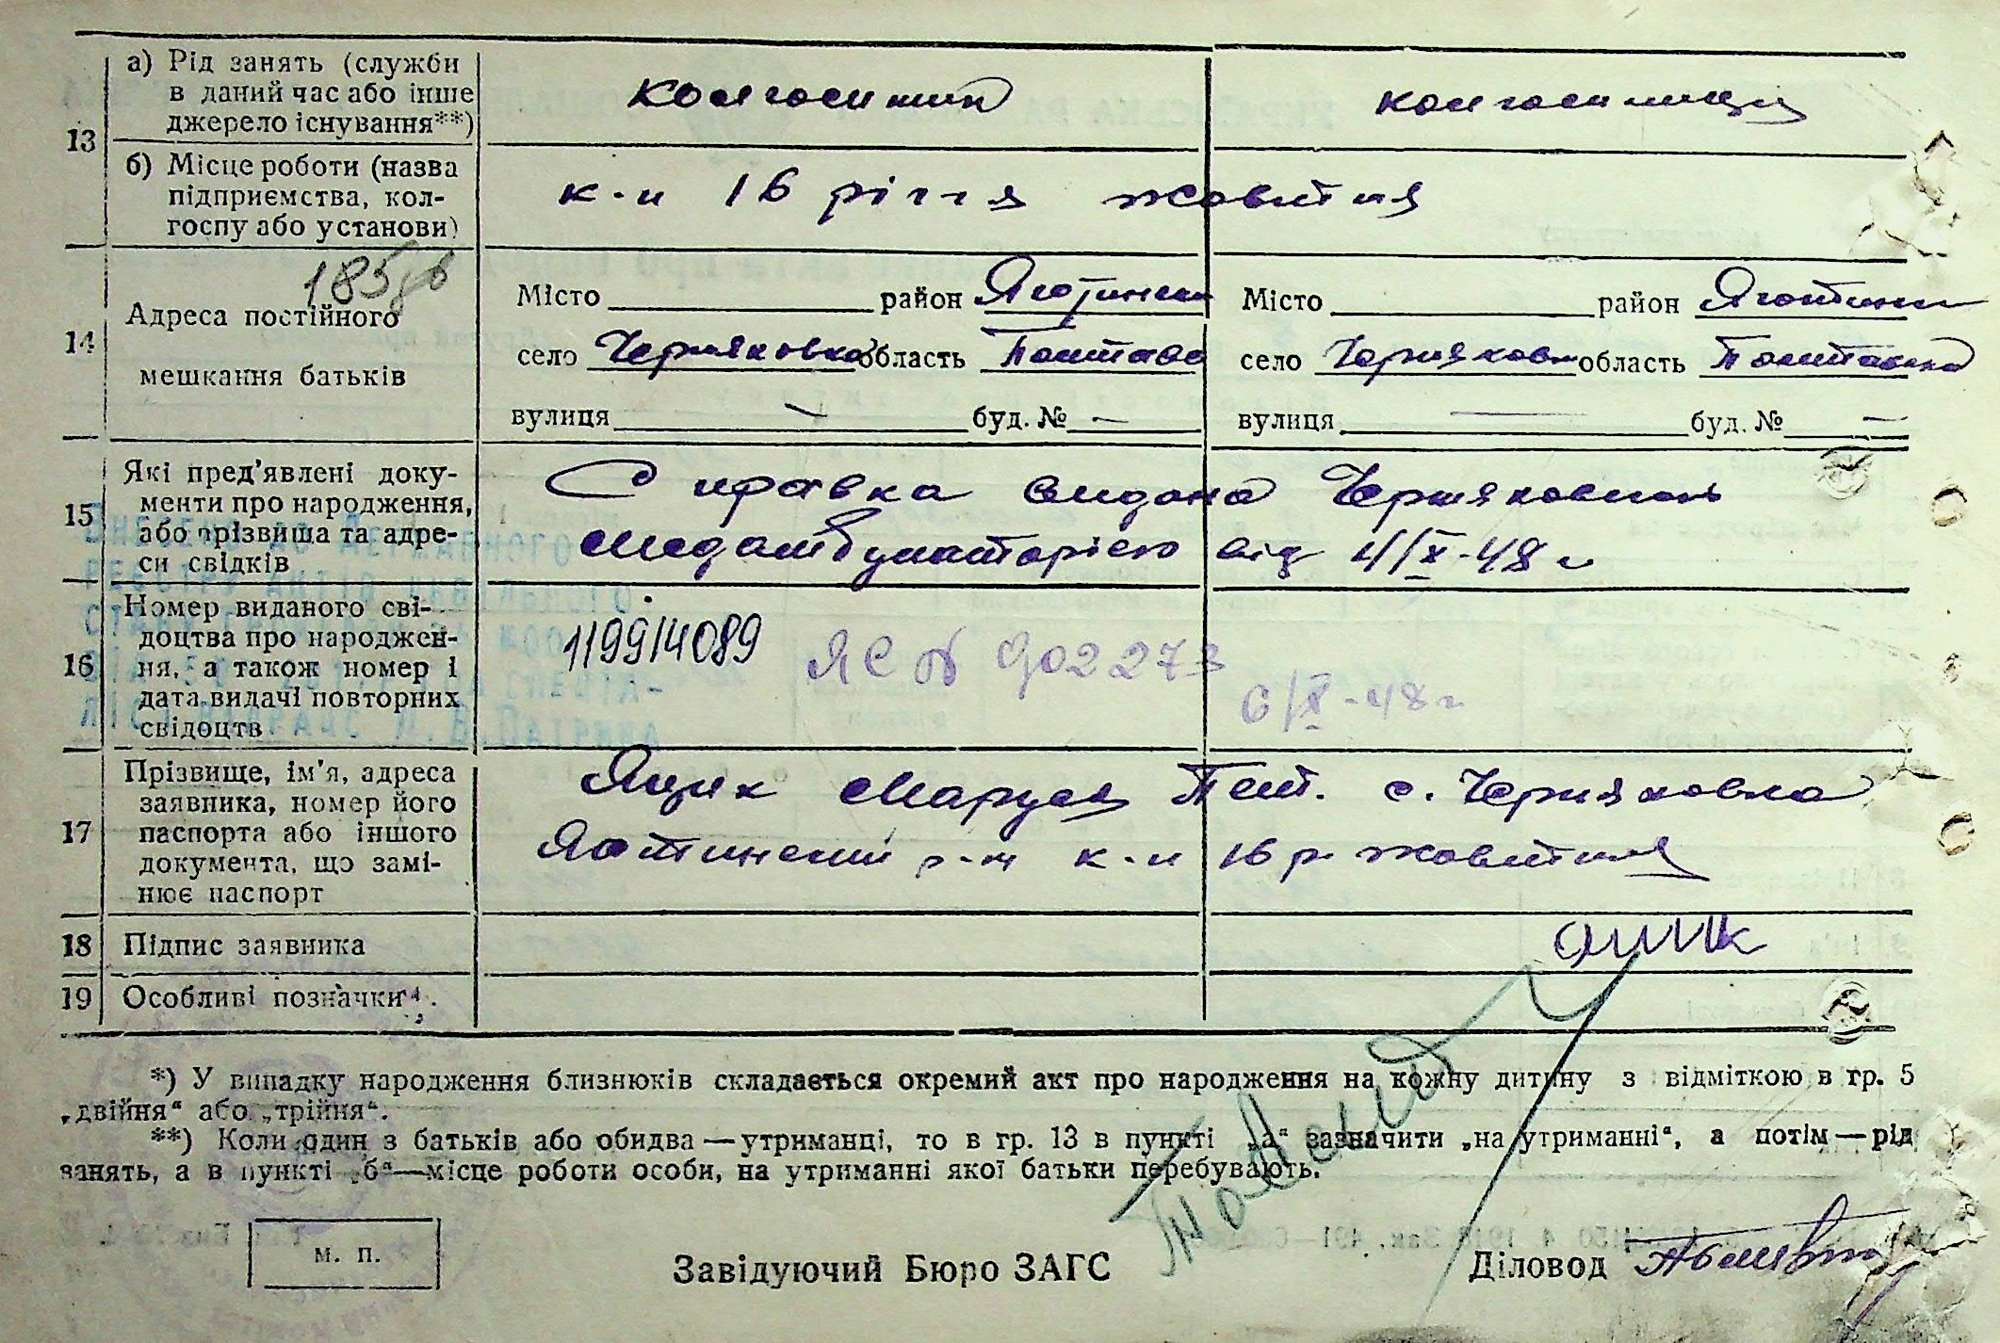 13
а) Рід занять (служби
в даний час або інше
джерело існування**)
колгоспник
колгоспниця
б) Місце роботи (назва
підприємства, кол-
госпу або установи)
к-п 16 річчя жовтня
14
185
Адреса постійного
мешкання батьків
Місто район Яготинськ
село Черняковка область Полтавс
вулиця — буд. № —
Місто район Яготинськ
село Черняковк область Полтавська
вулиця — буд. № —
15
Які пред'явлені доку-
менти про народження,
або прізвища та адре-
си свідків
Справка видана Черняковською
медамбулаторією від 4/X-48 г
16
Номер виданого сві-
доцтва про народжен-
ня, а також номер і
дата видачі повторних
свідоцтв
119914089 ЯС № 902273
6/X-48 г
17
Прізвище, ім'я, адреса
заявника, номер його
паспорта або іншого
документа, що замі-
нює паспорт
Яцик Маруся с. Черняковка
Яготинський р-н к-п 16 р. жовтня
18
Підпис заявника
Яцик
19
Особливі позначки
*) У випадку народження близнюків складається окремий акт про народження на кожну дитину з відміткою в гр. 5
„двійня“ або „трійня“.
**) Коли один з батьків або обидва—утриманці, то в гр. 13 в пункті „а“ зазначити „на утриманні“, а потім—рід
занять, а в пункті „б“—місце роботи особи, на утриманні якої батьки перебувають.
м. п.
Завідуючий Бюро ЗАГС
Діловод